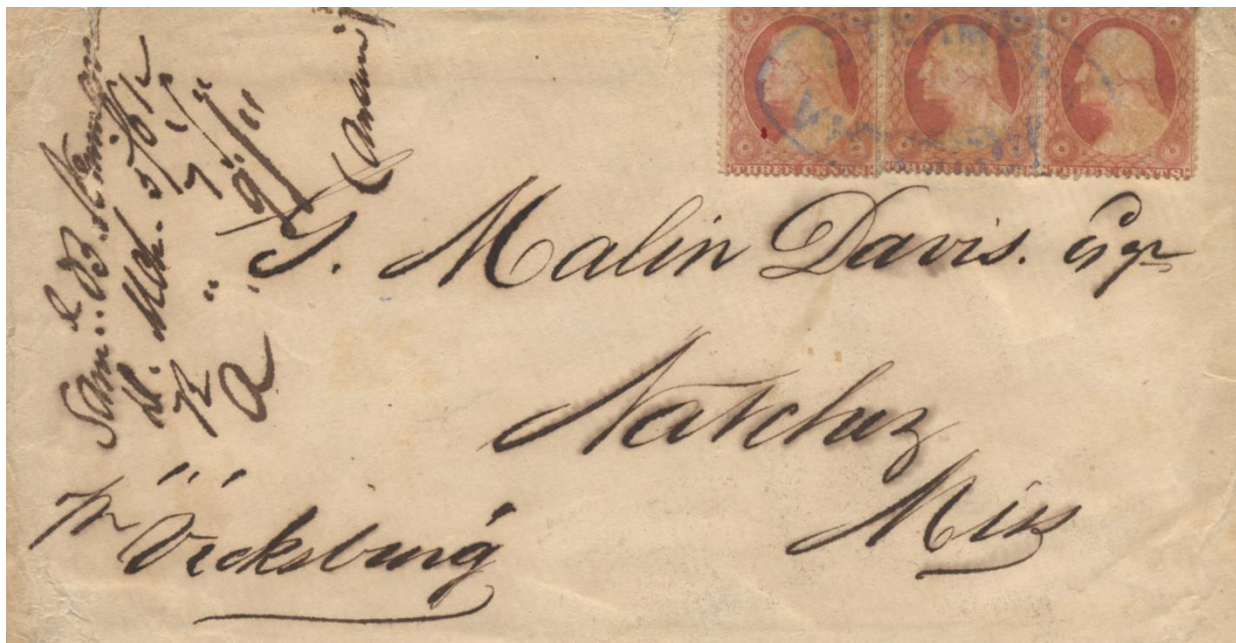 Sam.l B. Newman
dt. Mch. 5/61
R " 9/"
a " 9/"
J. Malin Davis. Esqr
Natchez
Miss
pr Vicksburg